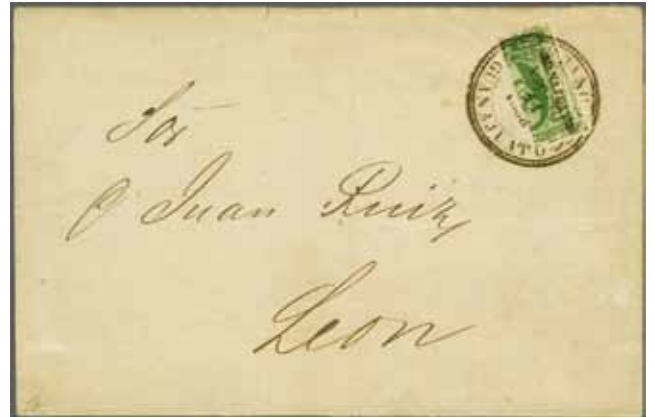 GUANAJUATO
Sor
D Juan Ruiz
Leon